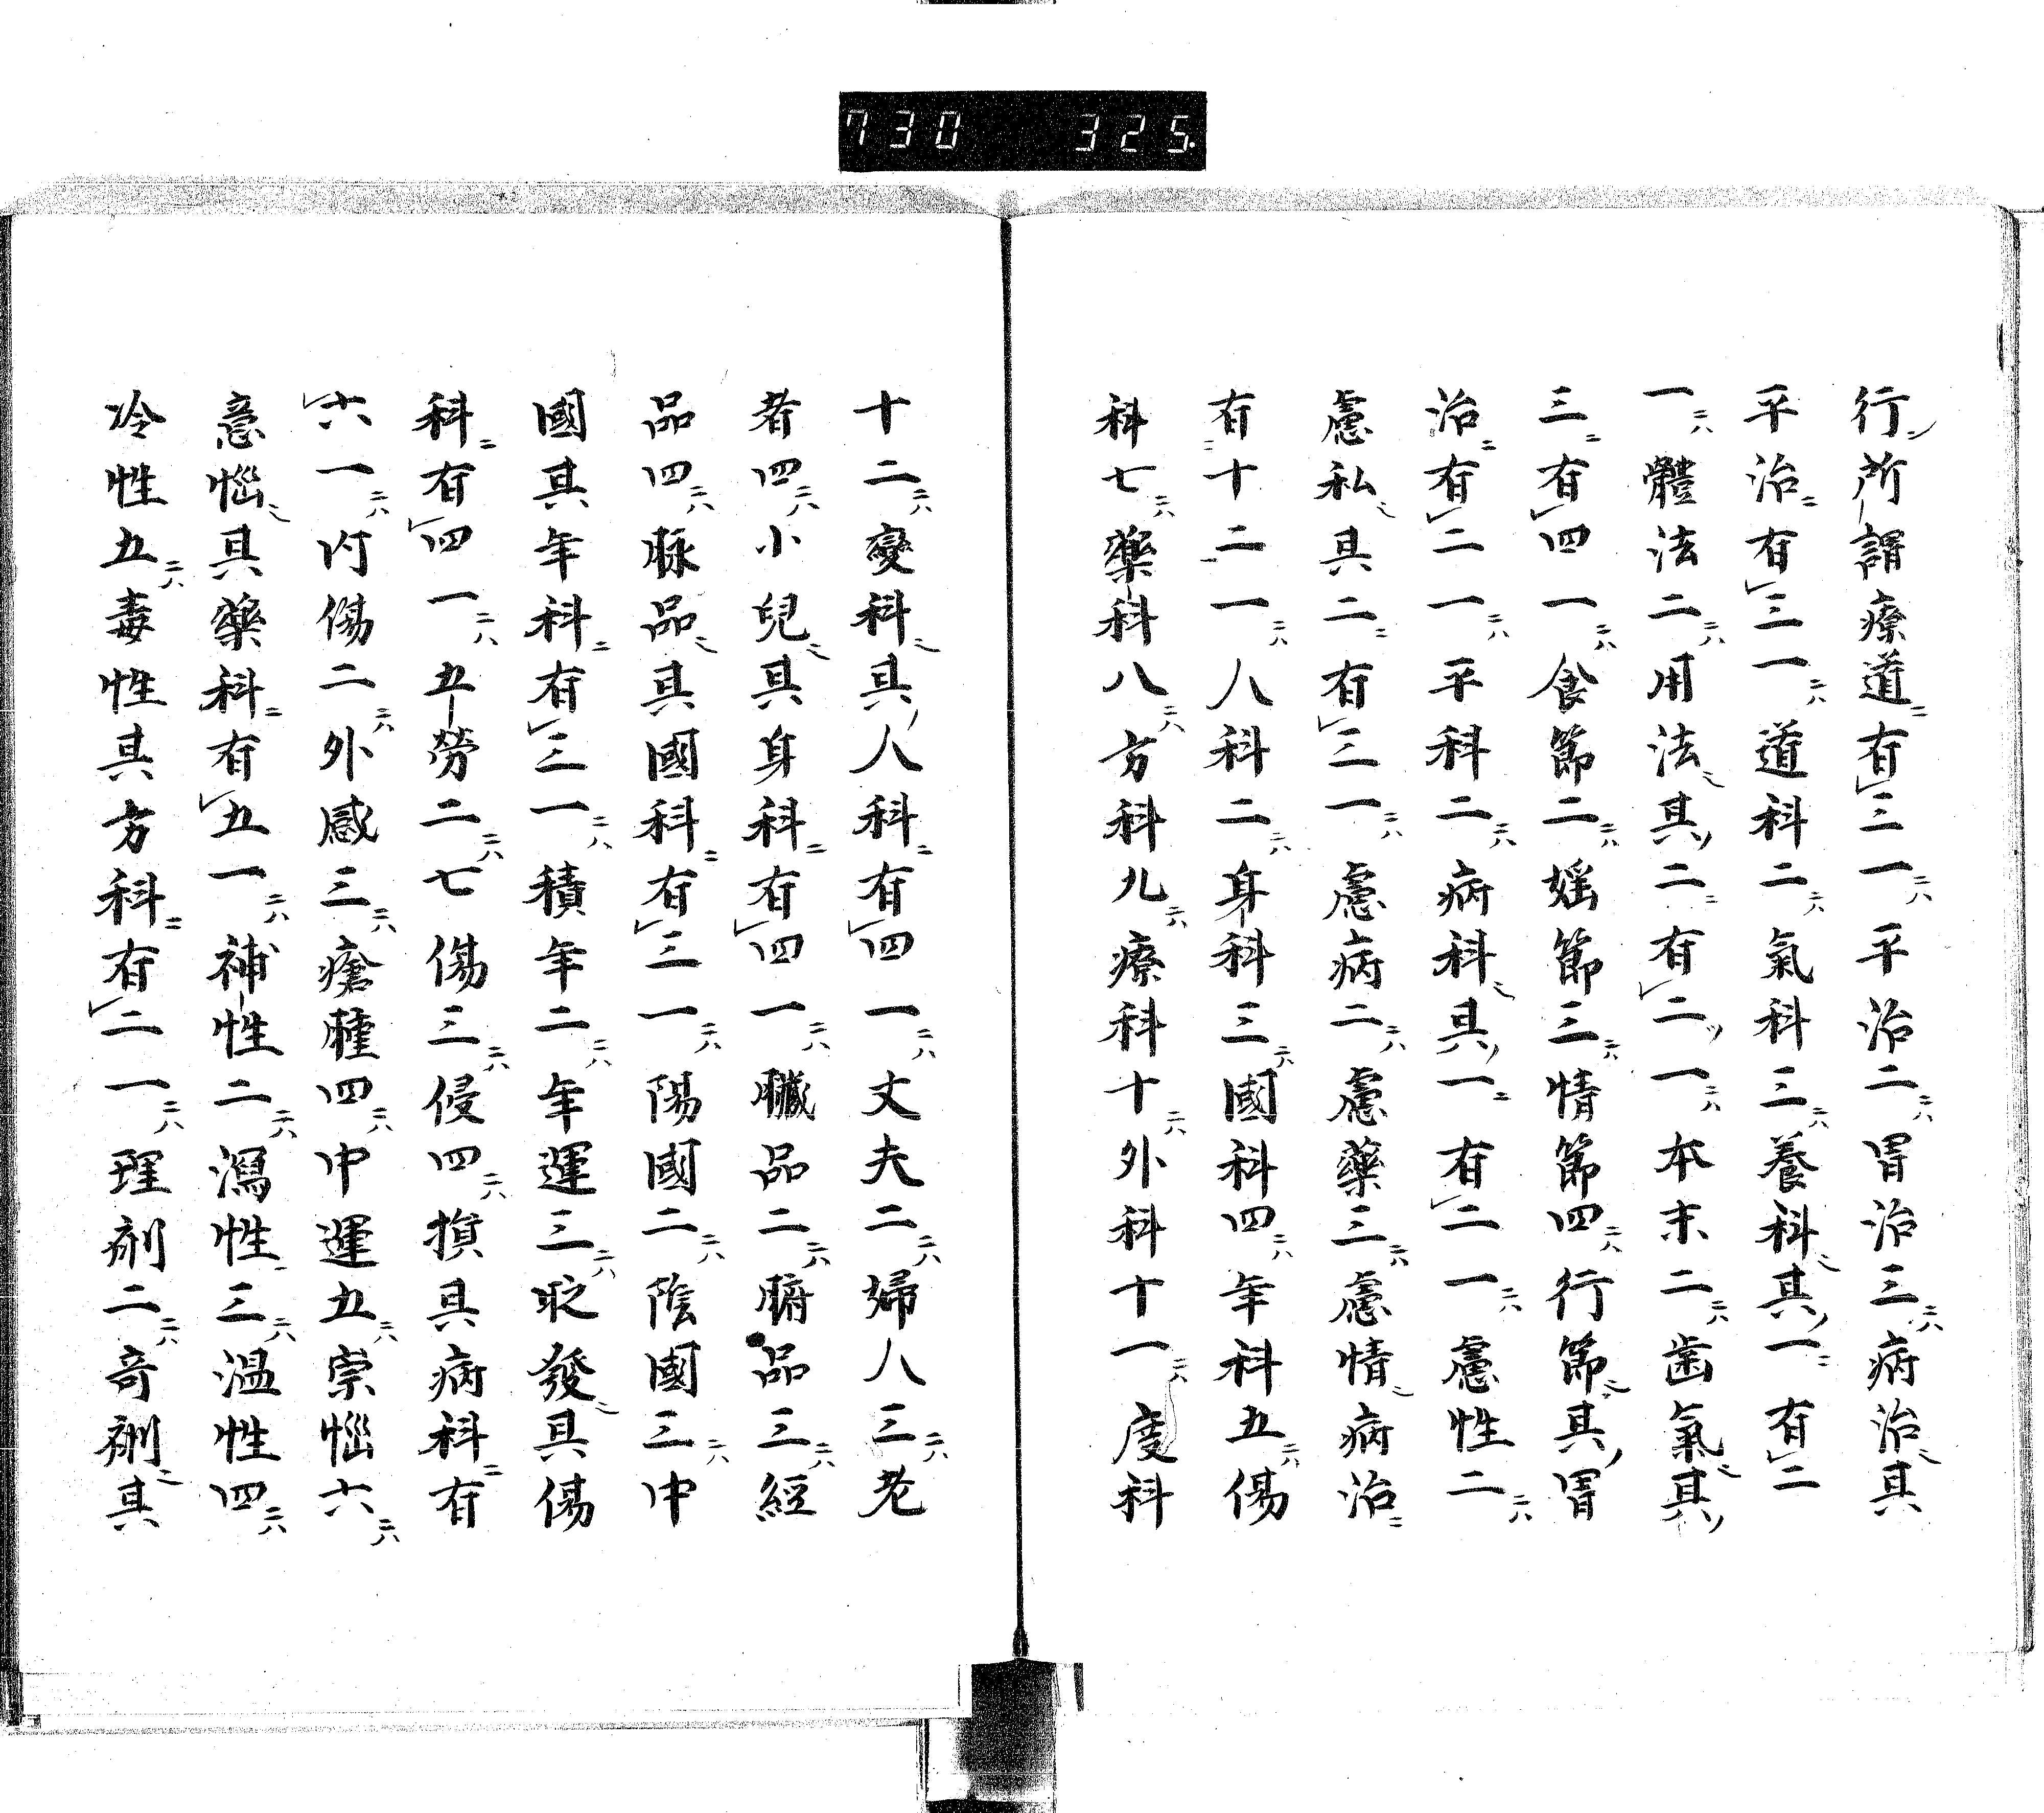 行所謂療道有三一平治二胃治三病治其
平治有三一道科二氣科三養科其一有二
一體法二用法其二有二一本末二歯氣其
三有四一食節二婬節三情節四行節其胃
治有二一平科二病科其一有二一慮性二
慮私其二有三一慮病二慮藥三慮情病治
有十二一人科二身科三國科四年科五傷
科七藥科八方科九療科十外科十一度科
十二變科其人科有四一丈夫二婦人三老
者四小兒其身科有四一臟品二腑品三經
品四脉品其國科有三一陽國二陰國三中
國其年科有三一積年二年運三疫發其傷
科有四一五勞二七傷三侵四損其病科有
六一内傷二外感三瘡腫四中運五祟惱六
急惱其藥科有五一補性二瀉性三温性四
冷性五毒性其方科有二一理剤二奇剤其
730 325